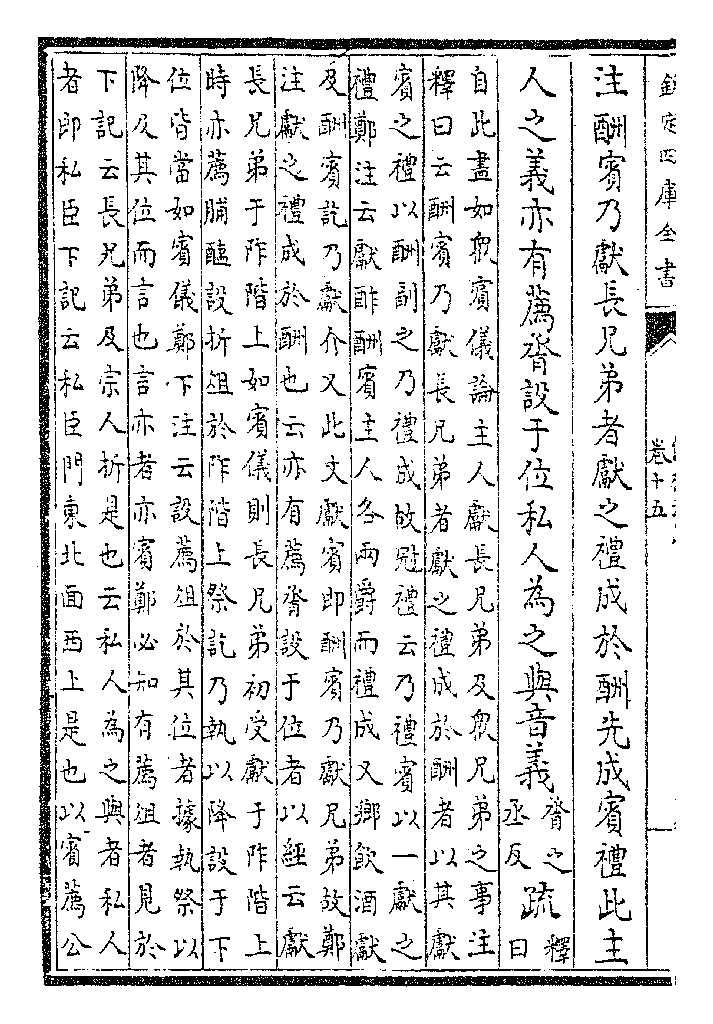 欽定四庫全書
卷十五
注酬賓乃獻長兄弟者獻之禮成於酬先成賓禮此主
人之義亦有薦脀設于位私人為之與音義脀之丞反疏釋曰
自此盡如衆賓儀論主人獻長兄弟及衆兄弟之事注
釋曰云酬賓乃獻長兄弟者獻之禮成於酬者以其獻
賓之禮以酬副之乃禮成故冠禮云乃禮賓以一獻之
禮鄭注云獻酢酬賓主人各兩爵而禮成又鄉飲酒獻
及酬賓訖乃獻介又此文獻賓即酬賓乃獻兄弟故鄭
注獻之禮成於酬也云亦有薦脀設于位者以經云獻
長兄弟于阼階上如賓儀則長兄弟初受獻于阼階上
時亦薦脯醢設折俎於阼階上祭訖乃執以降設于下
位皆當如賓儀鄭下注云設薦俎於其位者據執祭以
降及其位而言也言亦者亦賓鄭必知有薦俎者見於
下記云長兄弟及宗人折是也云私人為之與者私人
者即私臣下記云私臣門東北面西上是也以賓薦公